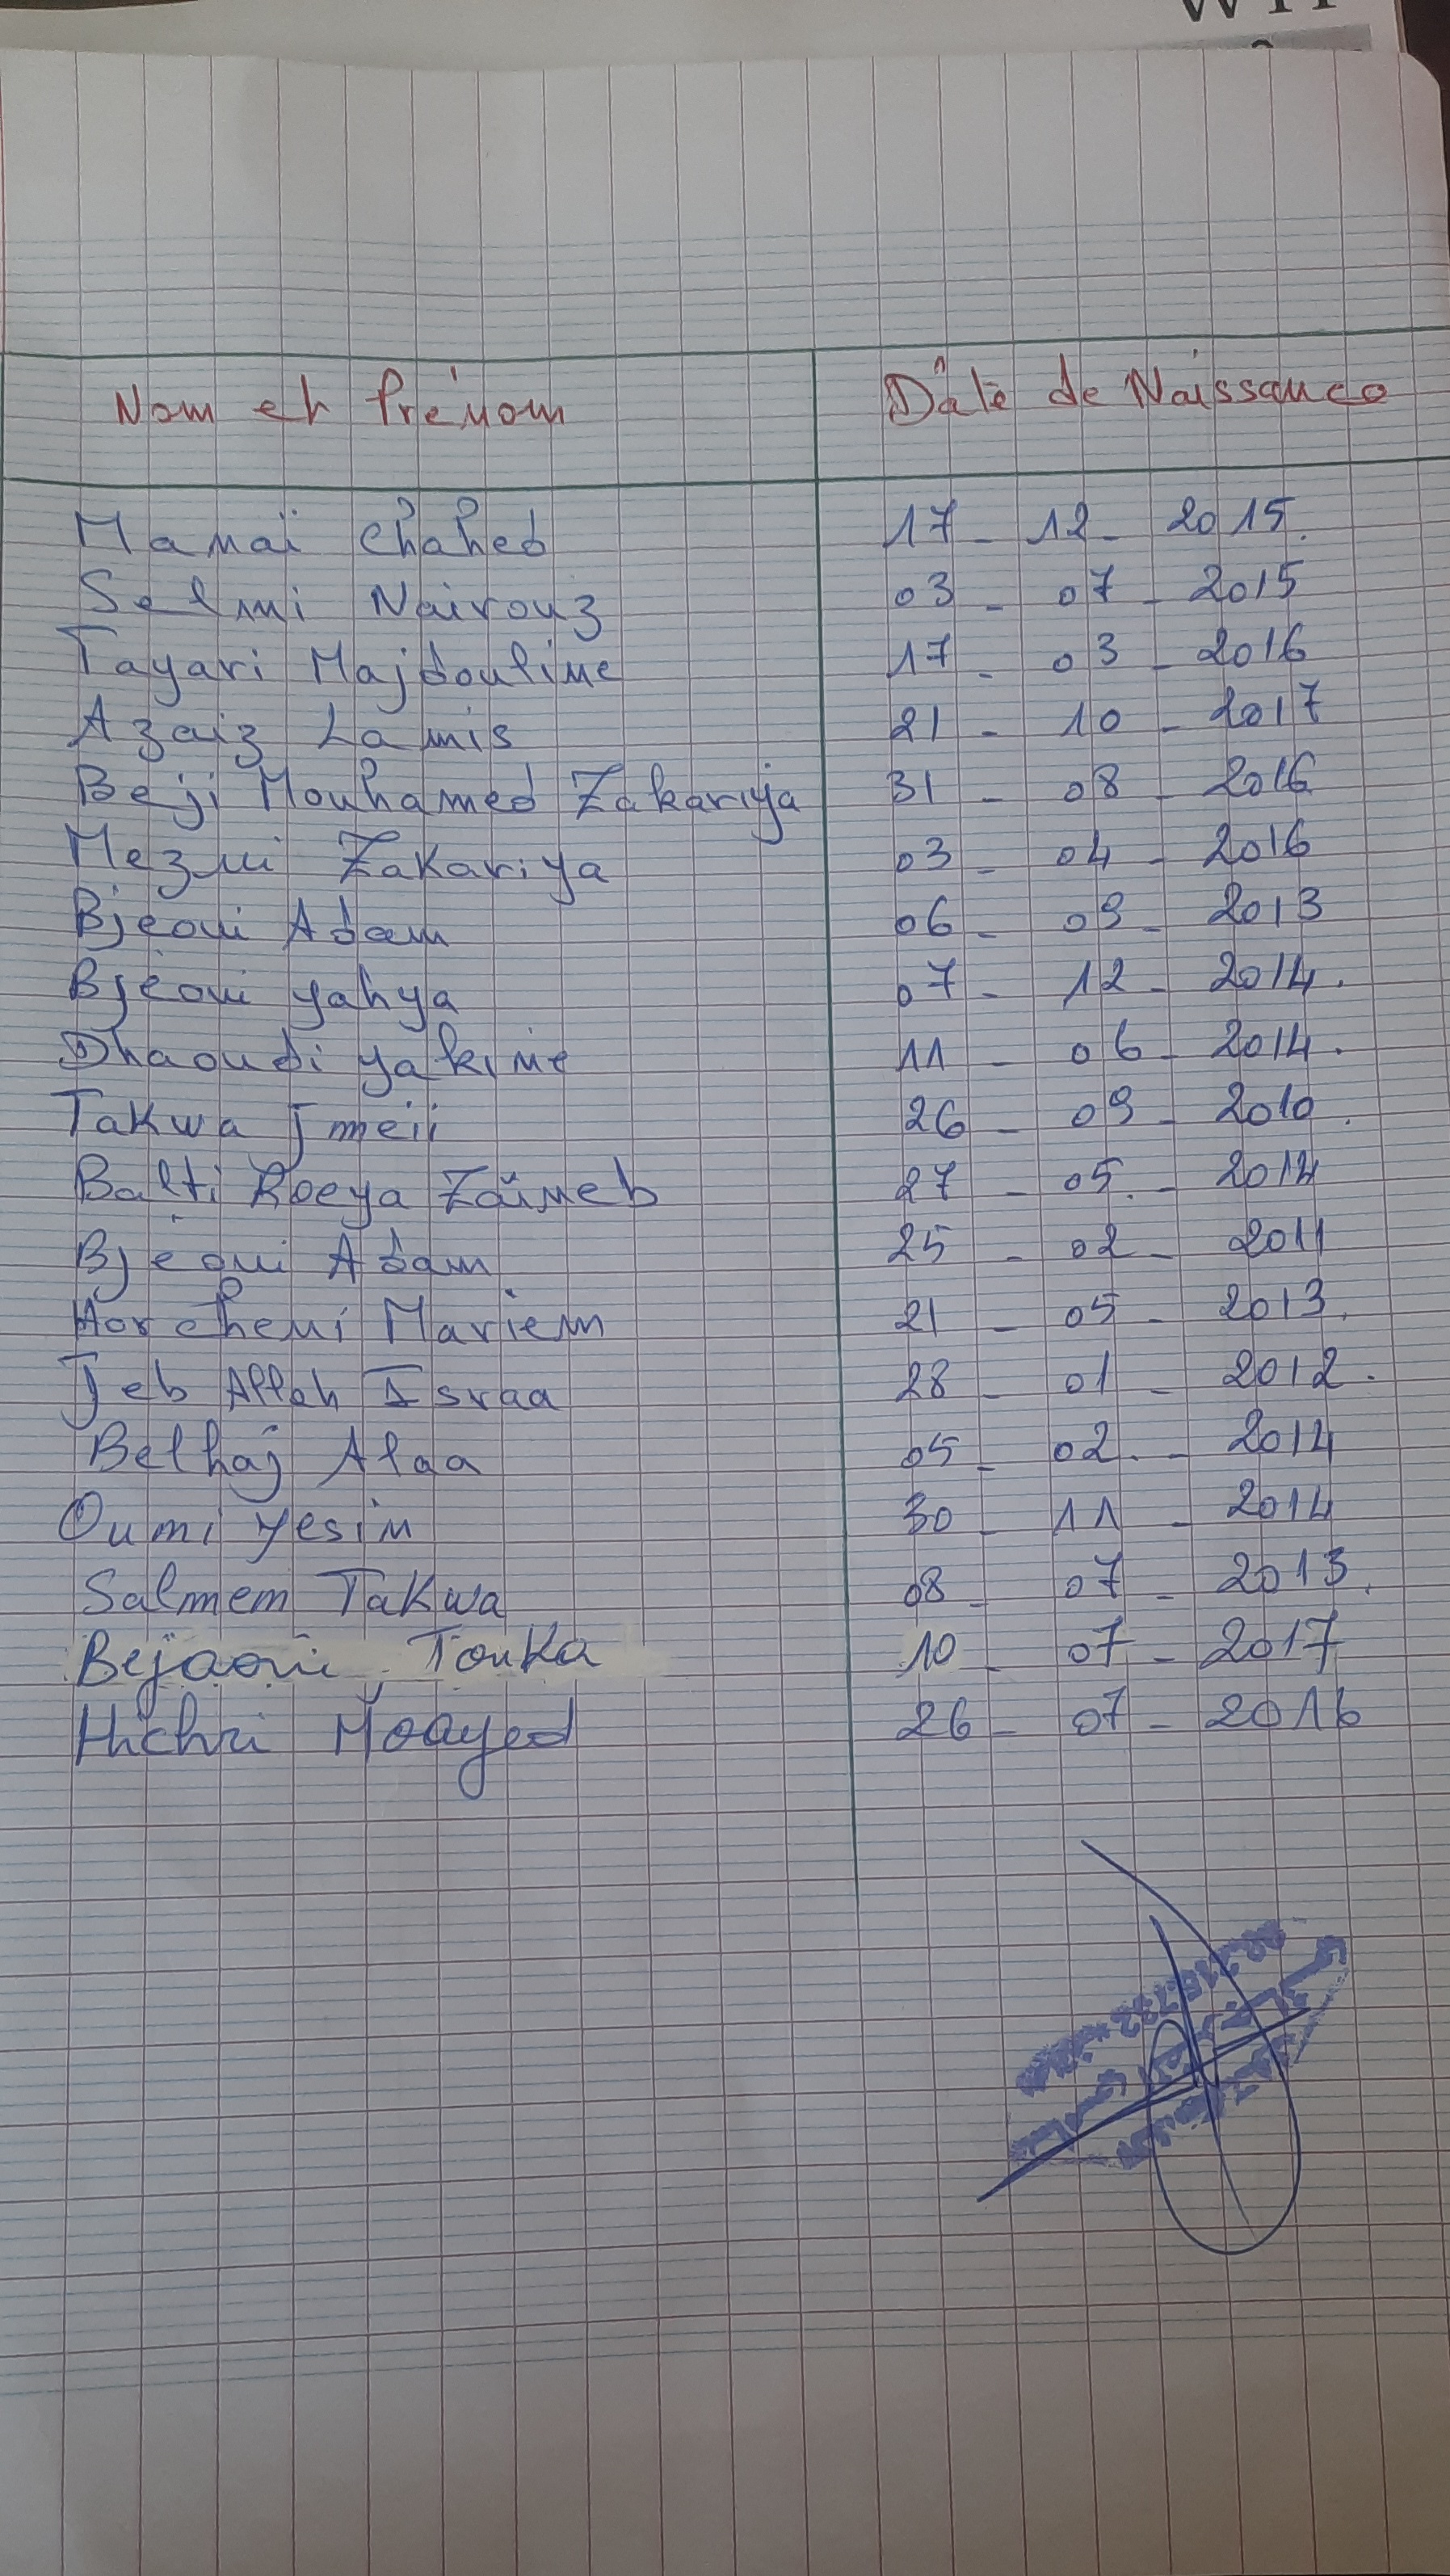 Nom et Prénom Dâte de Naissance
Manaï Chahed 17 - 12 - 2015.
Selmi Nairouz 03 - 07 - 2015
Tayari Majdouline 17 - 03 - 2016
Azaiz Lamis 21 - 10 - 2017
Beji Mouhamed Zakariya 31 - 08 - 2016
Mezni Zakariya 03 - 04 - 2016
Bjeoui Adam 06 - 09 - 2013
Bjéoui yahya 07 - 12 - 2014.
Dhaoudi yakine 11 - 06 - 2014.
Takwa Jmeii 26 - 09 - 2010.
Balti Roeya Zaïneb 27 - 05. - 2014
Bjéoui Adam 25 - 02 - 2011
Horcheni Mariem 21 - 05 - 2013.
Jeb Allah Israa 28 - 01 - 2012.
Belhaj Alaa 05 - 02. - 2014
Oumi yesin 30 - 11 - 2014
Salmem Takwa 08 - 07 - 2013.
Bejaoui Touka 10 - 07 - 2017
Hichri Moayed 26 - 07 - 2016